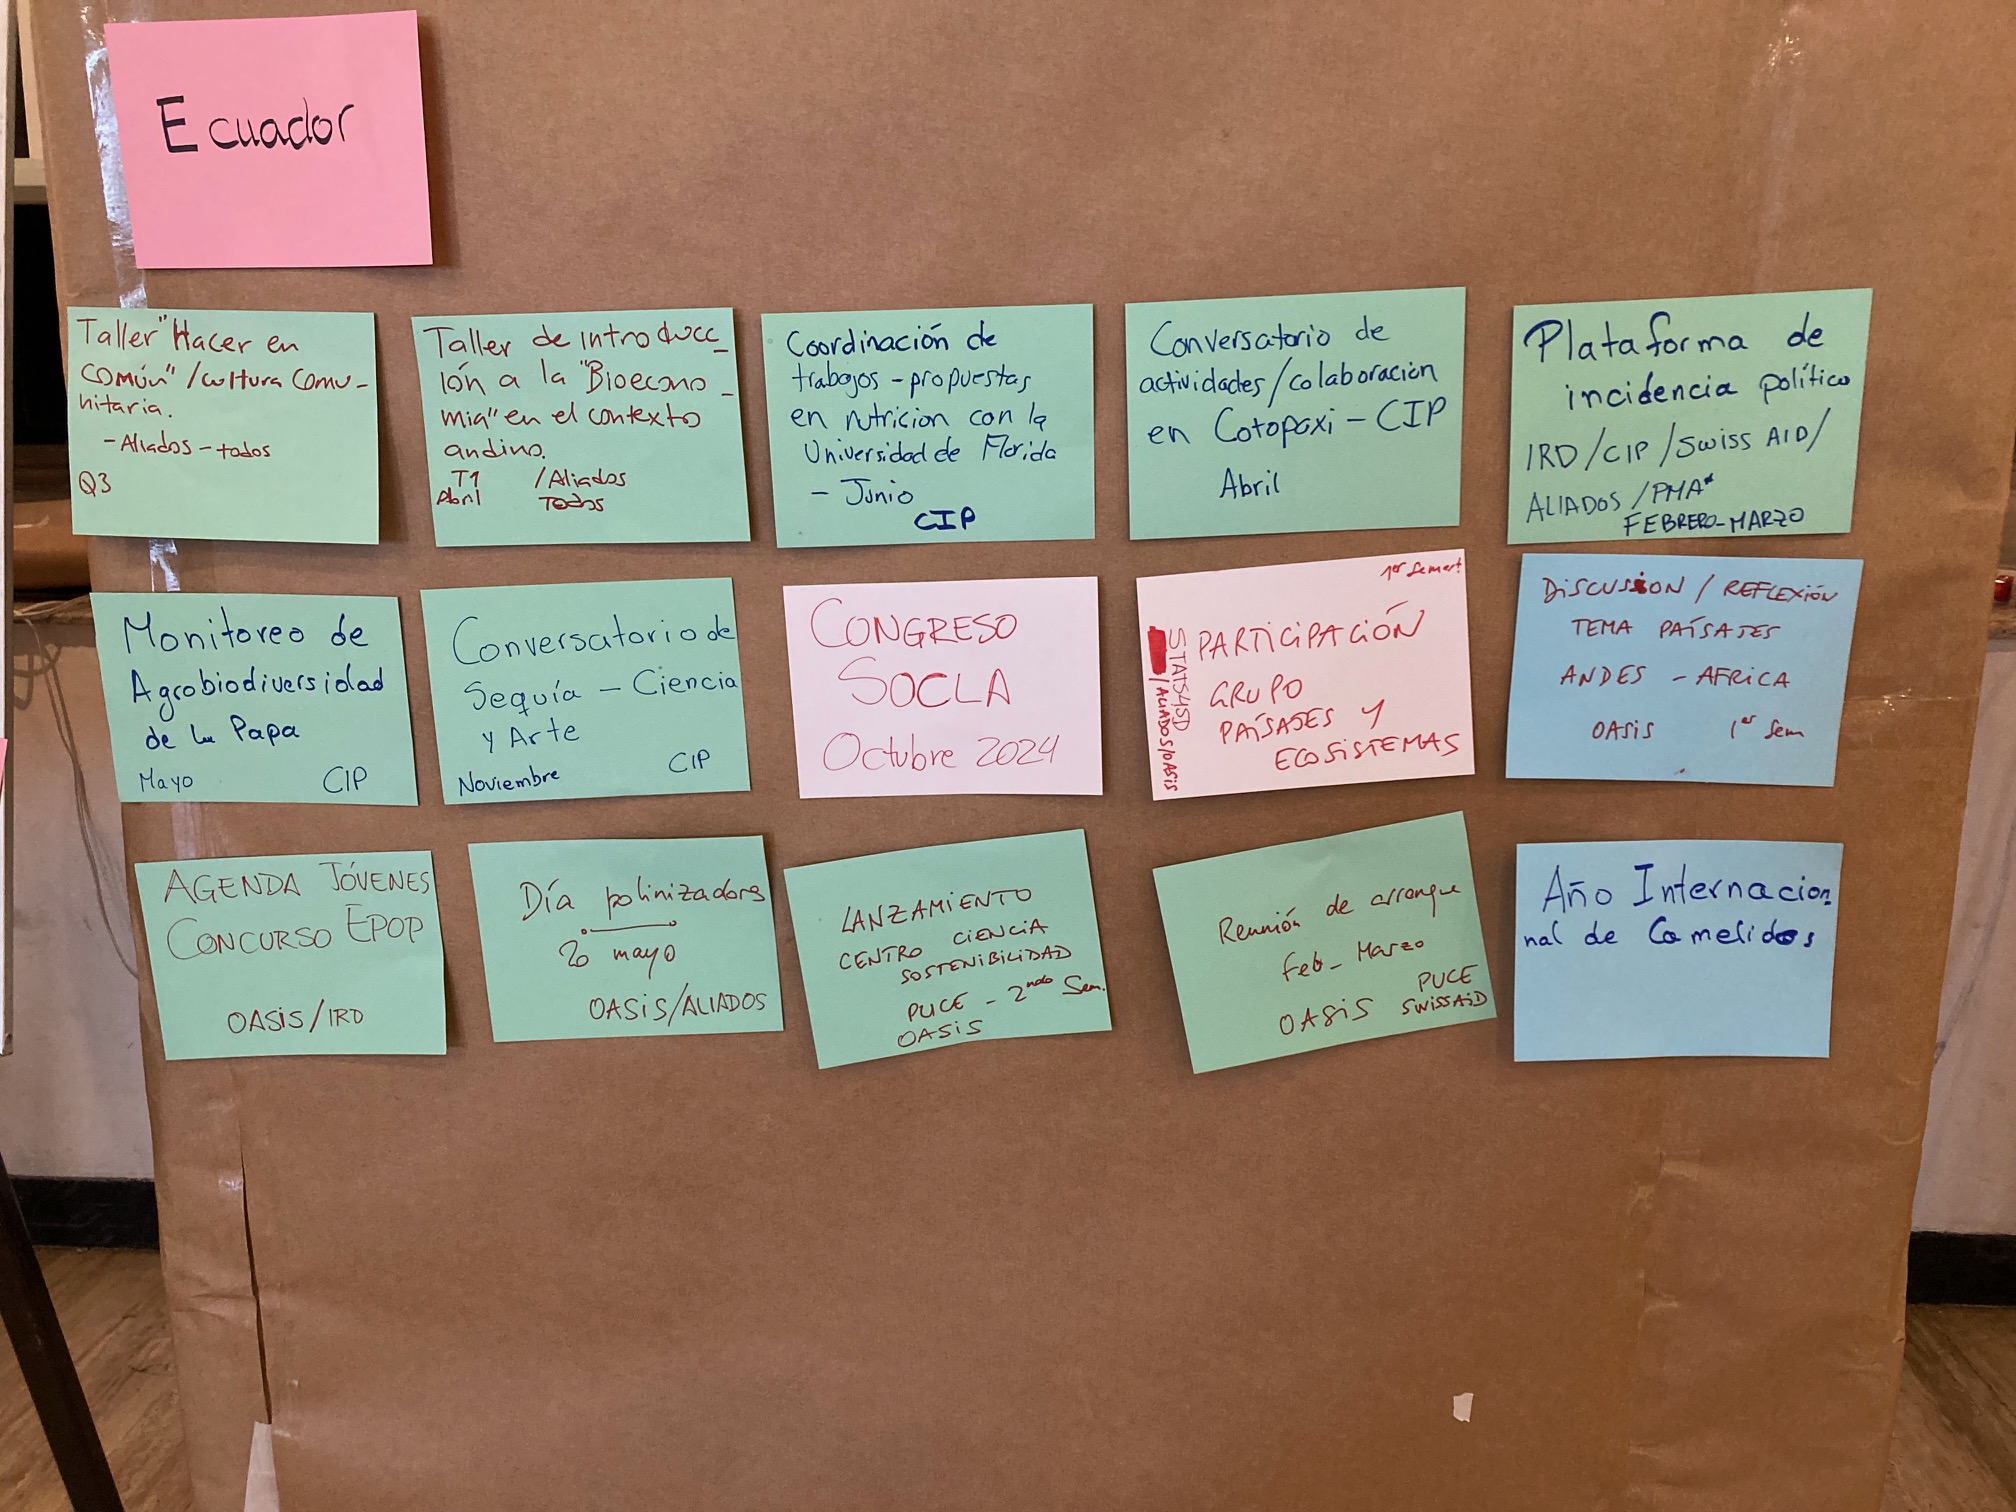 Ecuador
Taller "Hacer en
común" / cultura comu-
nitaria.
- Aliados - todos
Q3
Taller de introducc_
ión a la "Bioecono_
mia" en el contexto
andino.
T1 /Aliados
Abril Todos
Coordinación de
trabajos - propuestas
en nutricion con la
Universidad de Florida
- Junio
CIP
Conversatorio de
actividades/colaboración
en Cotopaxi - CIP
Abril
Plataforma de
incidencia político
IRD/CIP/SWISS AID/
ALIADOS/PMA*
FEBRERO-MARZO
Monitoreo de
Agrobiodiversidad
de la Papa
Mayo CIP
Conversatorio de
Sequía - Ciencia
y Arte
Noviembre CIP
CONGRESO
SOCLA
Octubre 2024
1er Semest
PARTICIPACIÓN
GRUPO
PAÍSAJES Y
ECOSISTEMAS
STATS4SD
/ALIADOS/OASIS
DISCUSION / REFLEXIÓN
TEMA PAÍSAJES
ANDES - AFRICA
OASIS 1er Sem
AGENDA JÓVENES
CONCURSO EPOP
OASIS/IRD
Día polinizadores
20 mayo
OASIS/ALIADOS
LANZAMIENTO
CENTRO CIENCIA
SOSTENIBILIDAD
PUCE - 2ndo Sem.
OASIS
Reunión de arranque
Feb_ Marzo
PUCE
OASIS SWISSAID
Año Internacion
nal de Camelidos